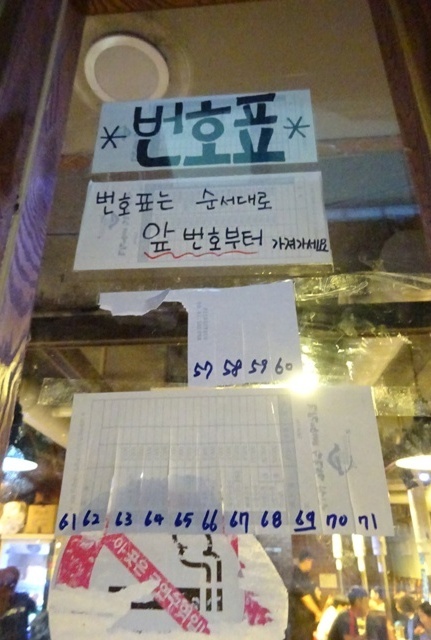 *번호표*
번호표는 순서대로
앞 번호부터 가져가세요
57 58 59 60
61 62 63 64 65 66 67 68 69 70 71